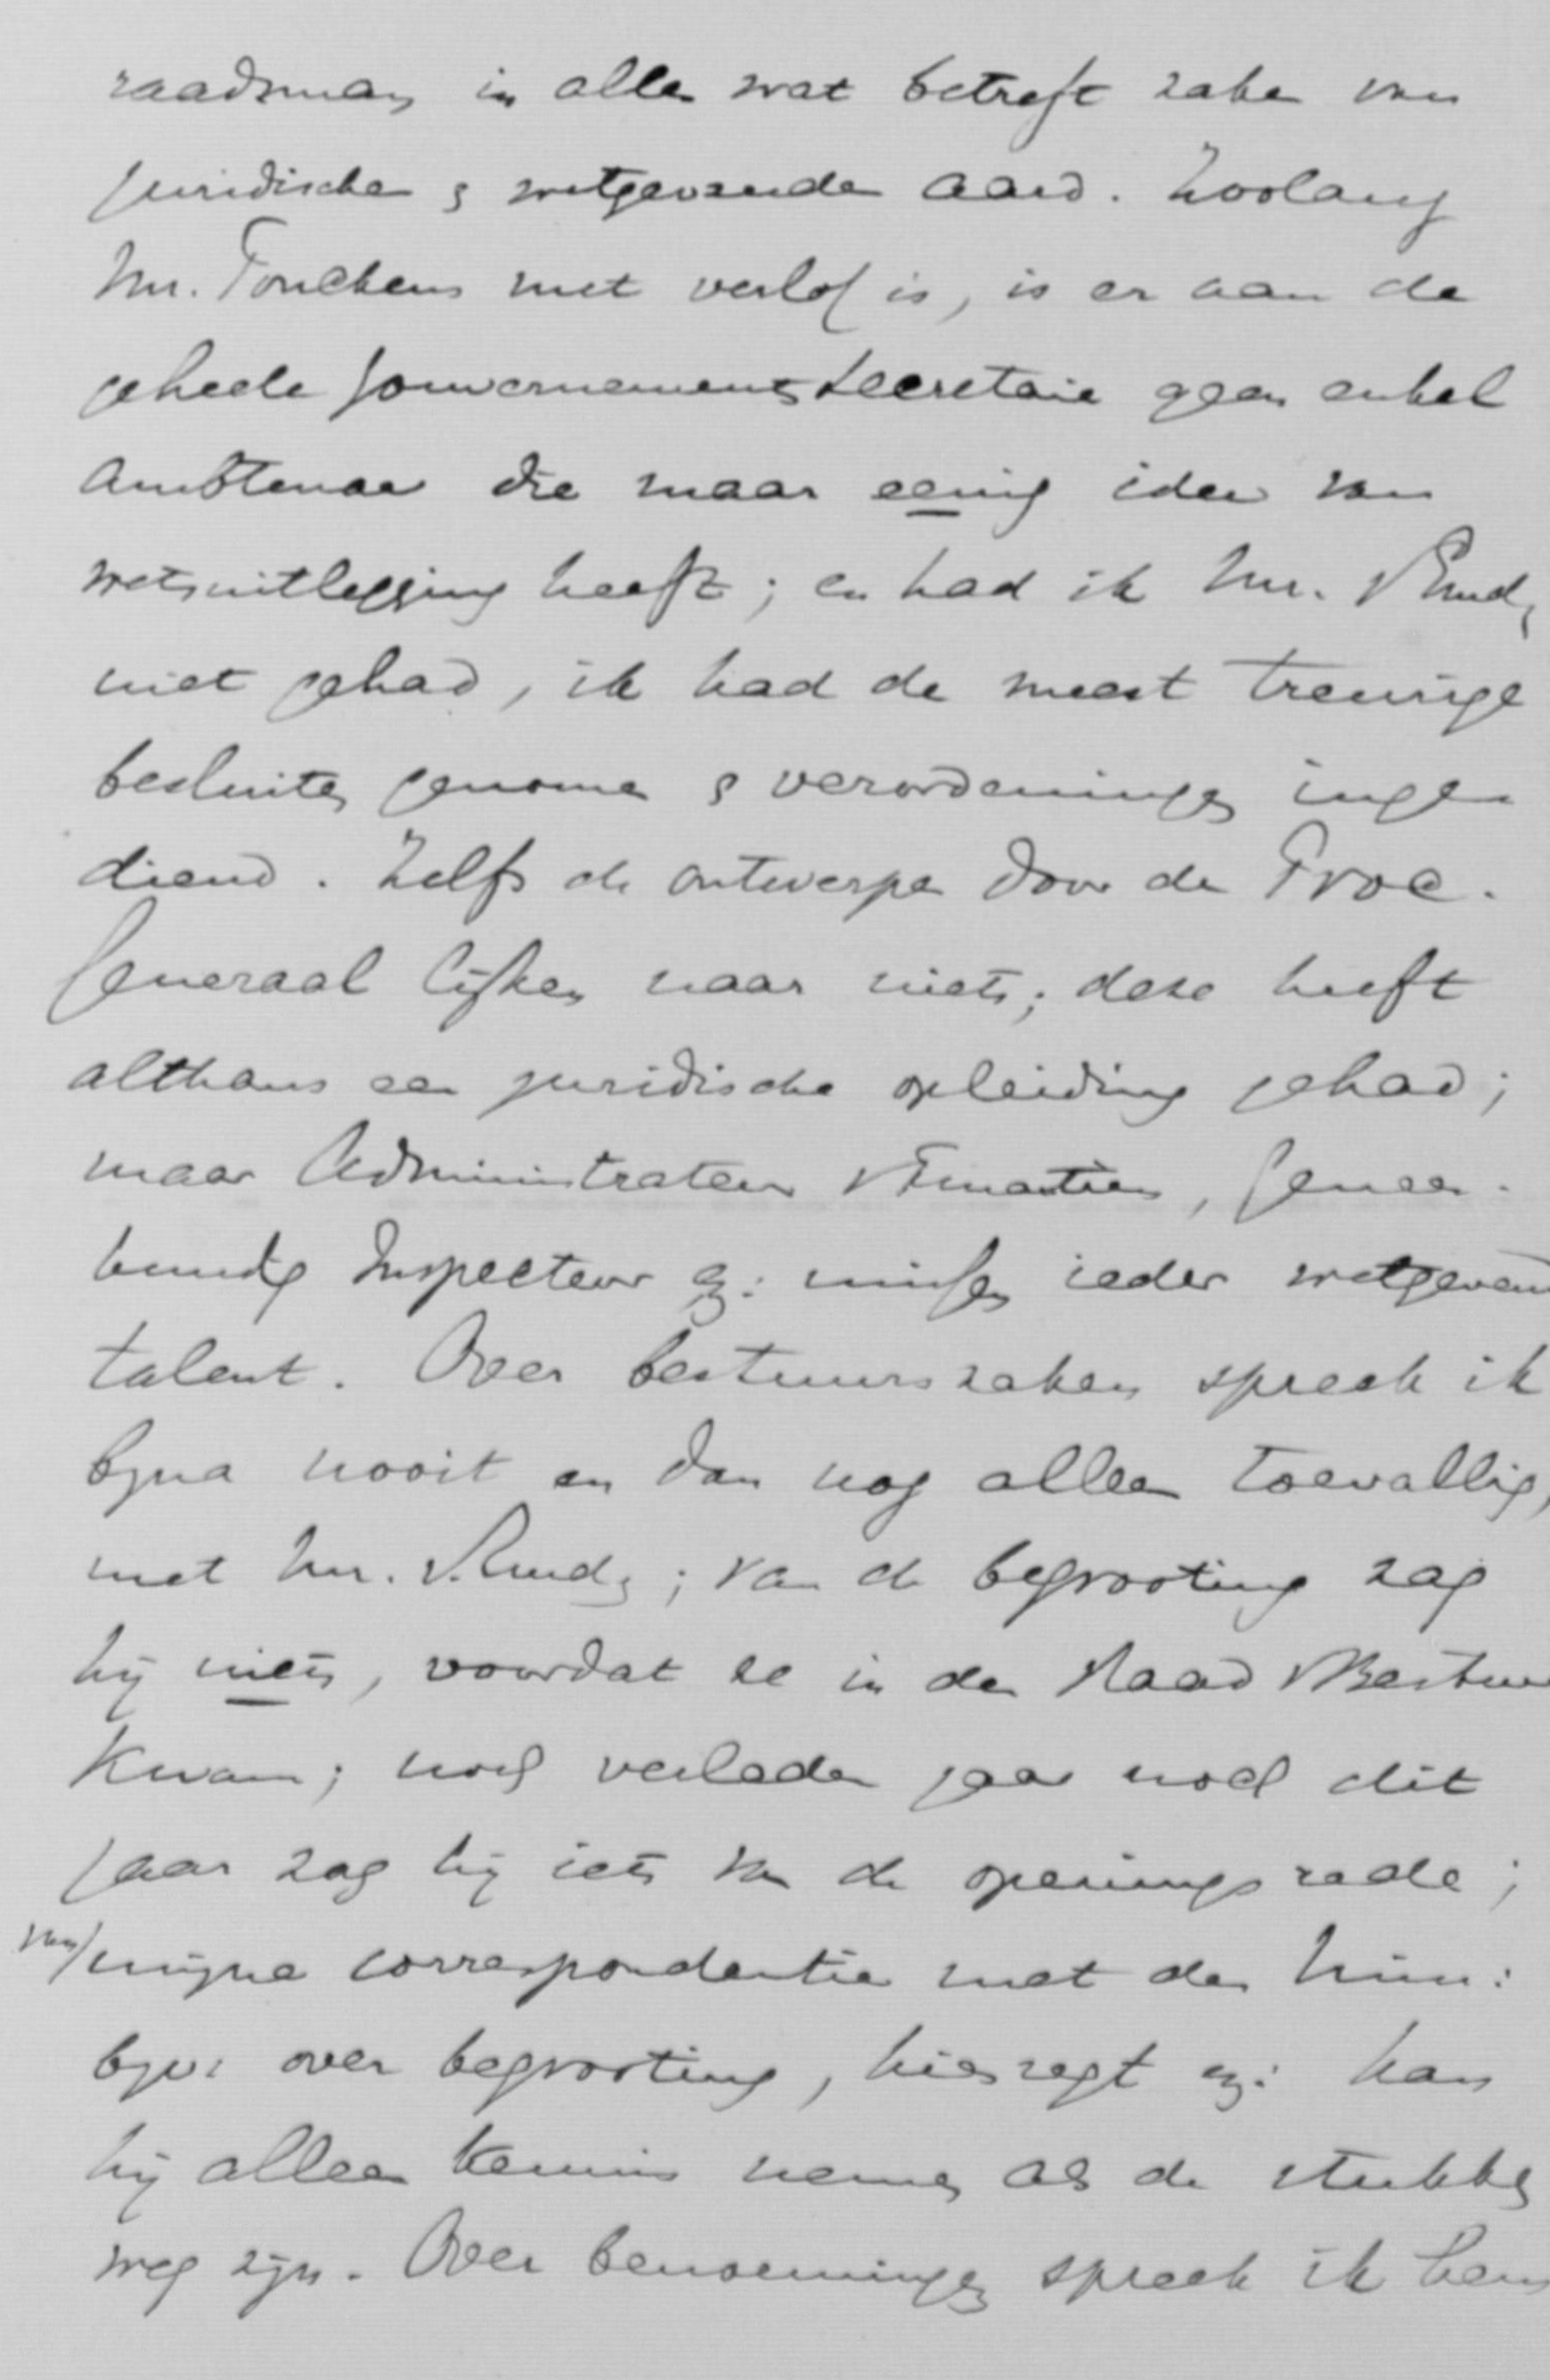 raadsman in alles wat betreft zaken van
juridischen & wetgevenden aard. Zoolang
Mr. Fonckens met verlof is, is er aan de
geheele Gouvernements Secretarie geen enkel
ambtenaar die maar eenig idee van
wetsuitlegging heeft; en had ik Mr.
niet gehad, ik had de meest treurige
besluiten genomen & verordeningen inge-
diend. Zelfs de ontwerpen door de Proc.
Generaal lijken naar niets; deze heeft
althans een juridische opleiding gehad;
maar Administrateur v Financiën, Genees-
kundig Inspecteur ez: missen ieder wetgevend
talent. Over bestuurszaken spreek ik
bijna nooit en dan nog alleen toevallig,
met Mr. ; van de begrooting zag
hij niets, voordat ze in den Raad v Bestuur
kwam; noch verleden jaar noch dit
jaar zag hij iets van de openingsrede;
van/ mijne correspondentie met den Min:
bijv: over begrooting, kiesregt ez: kan
hij alleen kennis nemen als de stukken
weg zijn. Over benoemingen spreek ik hem